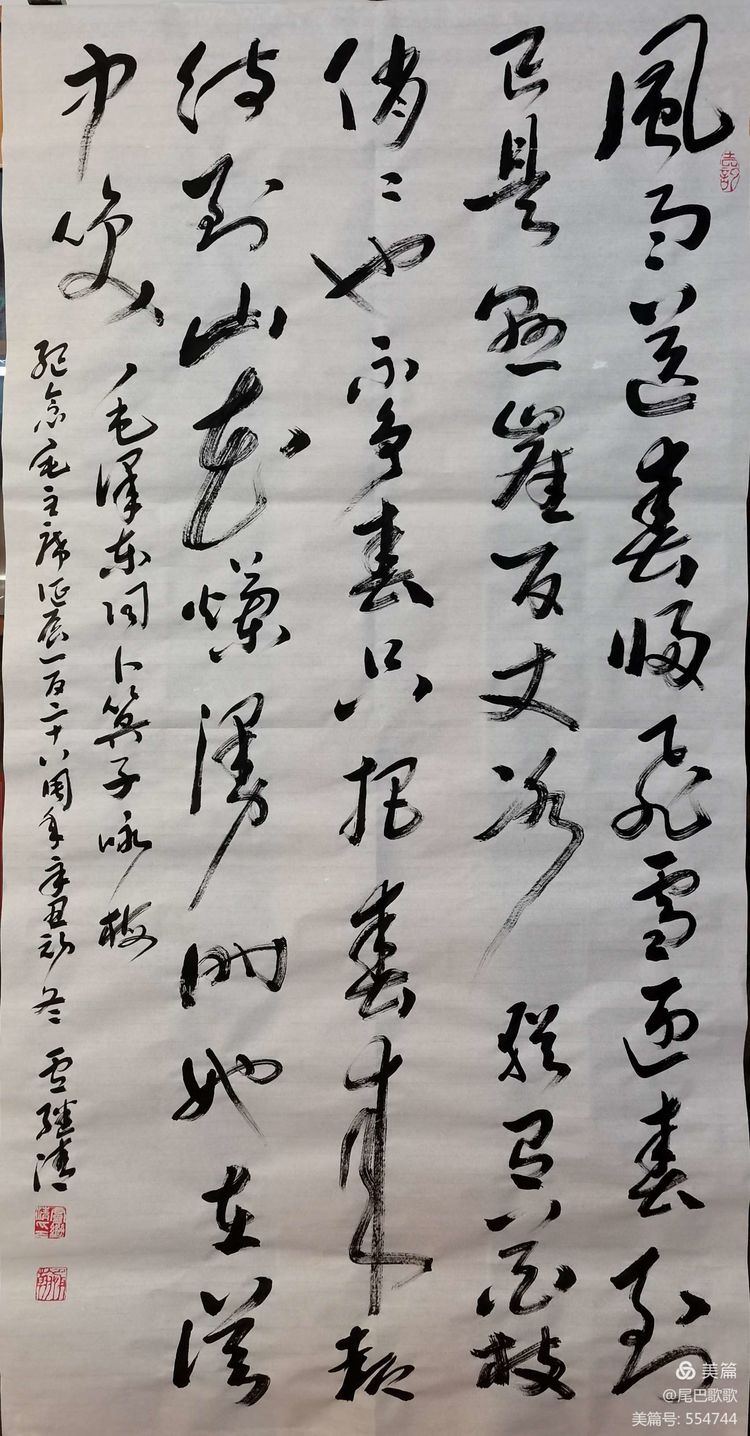 風雨送春歸飛雪迎春到
已是懸崖百丈冰猶有花枝
俏〻也不争春只把春来報
待到山花爛漫时她在叢
中笑 毛澤東词卜算子咏梅
纪念毛主席诞辰一百二十八周年辛丑初冬
美篇
@尾巴歌歌
美篇号: 554744